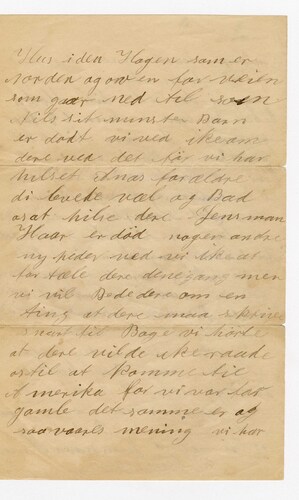 Hus iden Hagen som er
norden ag oven for veien
som gaar ned til søen
Nils sit minste Barn
er dødt vi ved ike om
dere ved det før vi har
hilset Enas foræeldre
di levede vel og Bad
os at hilse dere Jens man
Haar er død nogen andre
ny heder ved vi ike at
for tæle dere denegang men
vi vil Bede dere om en
ting at dere maa skrive
snart til Bage vi horde
at dere vilde ike raade
os til at komme til
Amerika for vi var for
gamle det samme er og
saa vaares mening vi har